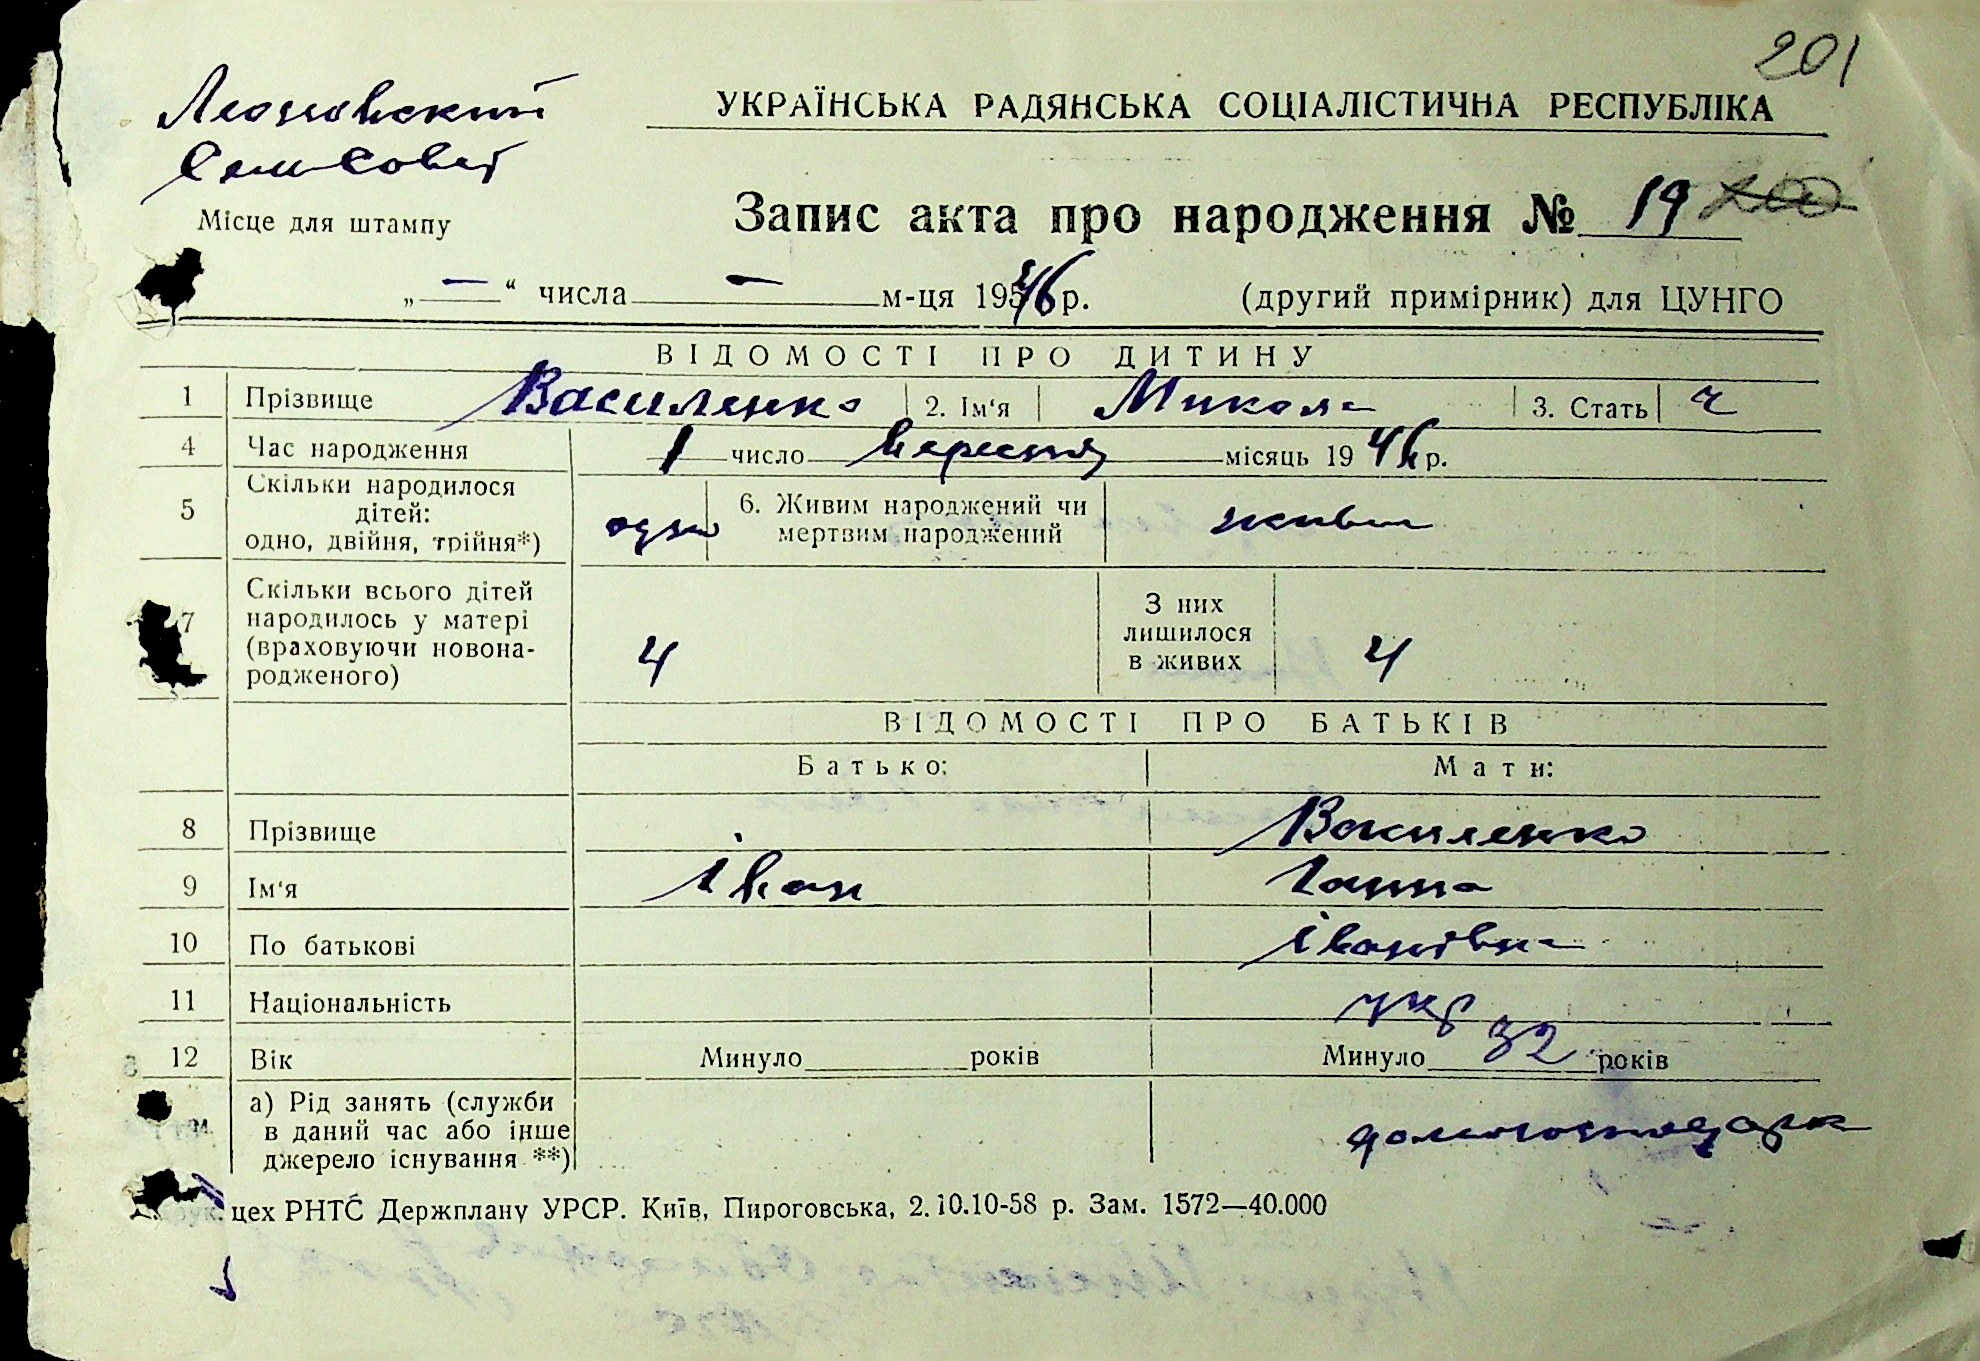 201
УКРАЇНСЬКА РАДЯНСЬКА СОЦІАЛІСТИЧНА РЕСПУБЛІКА
Місце для штампу
Запис акта про народження № 19 200
„ — “ числа — м-ця 1946 р. (другий примірник) для ЦУНГО
ВІДОМОСТІ ПРО ДИТИНУ
1 Прізвище Василенко 2. Ім‘я Микола 3. Стать ч
4 Час народження 1 число вересня місяць 1946 р.
5 Скільки народилося
дітей:
одно, двійня, трійня*) одно 6. Живим народжений чи
мертвим народжений живим
7 Скільки всього дітей
народилось у матері
(враховуючи новона-
родженого) 4 З них
лишилося
в живих 4
ВІДОМОСТІ ПРО БАТЬКІВ
Батько: Мати:
8 Прізвище Василенко
9 Ім‘я Іван Ганна
10 По батькові Іванівна
11 Національність укр
12 Вік Минуло років Минуло 32 років
а) Рід занять (служби
в даний час або інше
джерело існування **) домогосподарк
цех РНТС Держплану УРСР. Київ, Пироговська, 2. 10.10-58 р. Зам. 1572—40.000